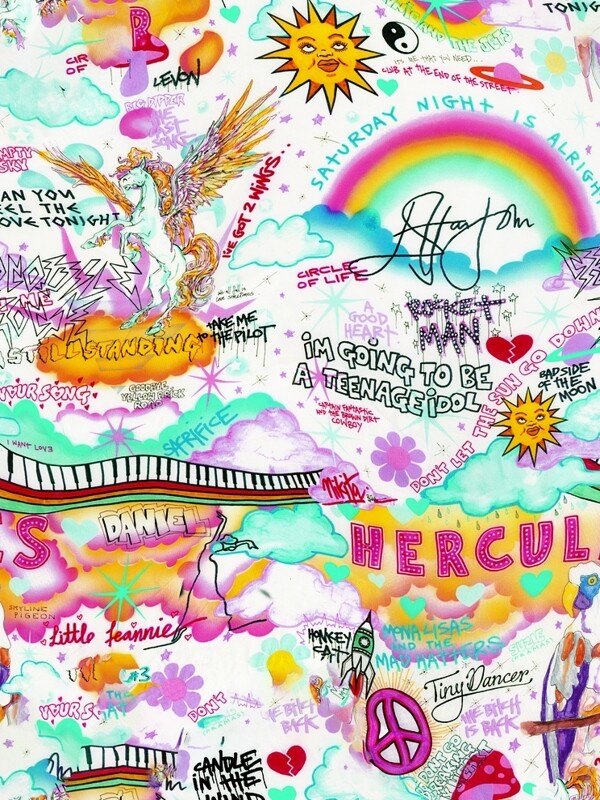 TONIG
B
CIR
OF
LEVON
AND THE JETS
IT'S ME THAT YOU NEED
CLUB AT THE END OF THE STREET
BIG DIPPER
THE
LAST
SONG
SATURDAY NIGHT IS ALRIGH
EMPTY
SKY
AN YOU
EEL THE
OVE TONIGHT
I'VE GOT 2 WINGS..
CIRCLE
OF LIFE
A
GOOD
HEART
ROCKET
MAN
TAKE ME
TO THE PILOT
STILL STANDING
I'M GOING TO BE
A TEENAGE IDOL
BADSIDE
OF THE
MOON
YOUR SONG
GOODBYE
YELLOW BRICK
ROAD
CAPTAIN FANTASTIC
AND THE BROWN DIRT
COWBOY
DON'T LET THE SUN GO DOWN
I WANT LOVE
SACRIFICE
Nikita
S
DANIEL
HERCUL
SKYLINE
PIGEON
Little Jeannie
HONKEY
CAT
MONA LISAS
AND THE
MAD HATTERS
Tiny Dancer
YOUR S
DON'T
THE BITCH
IS BACK
THE BITCH
IS BACK
CANDLE
IN THE
WIND